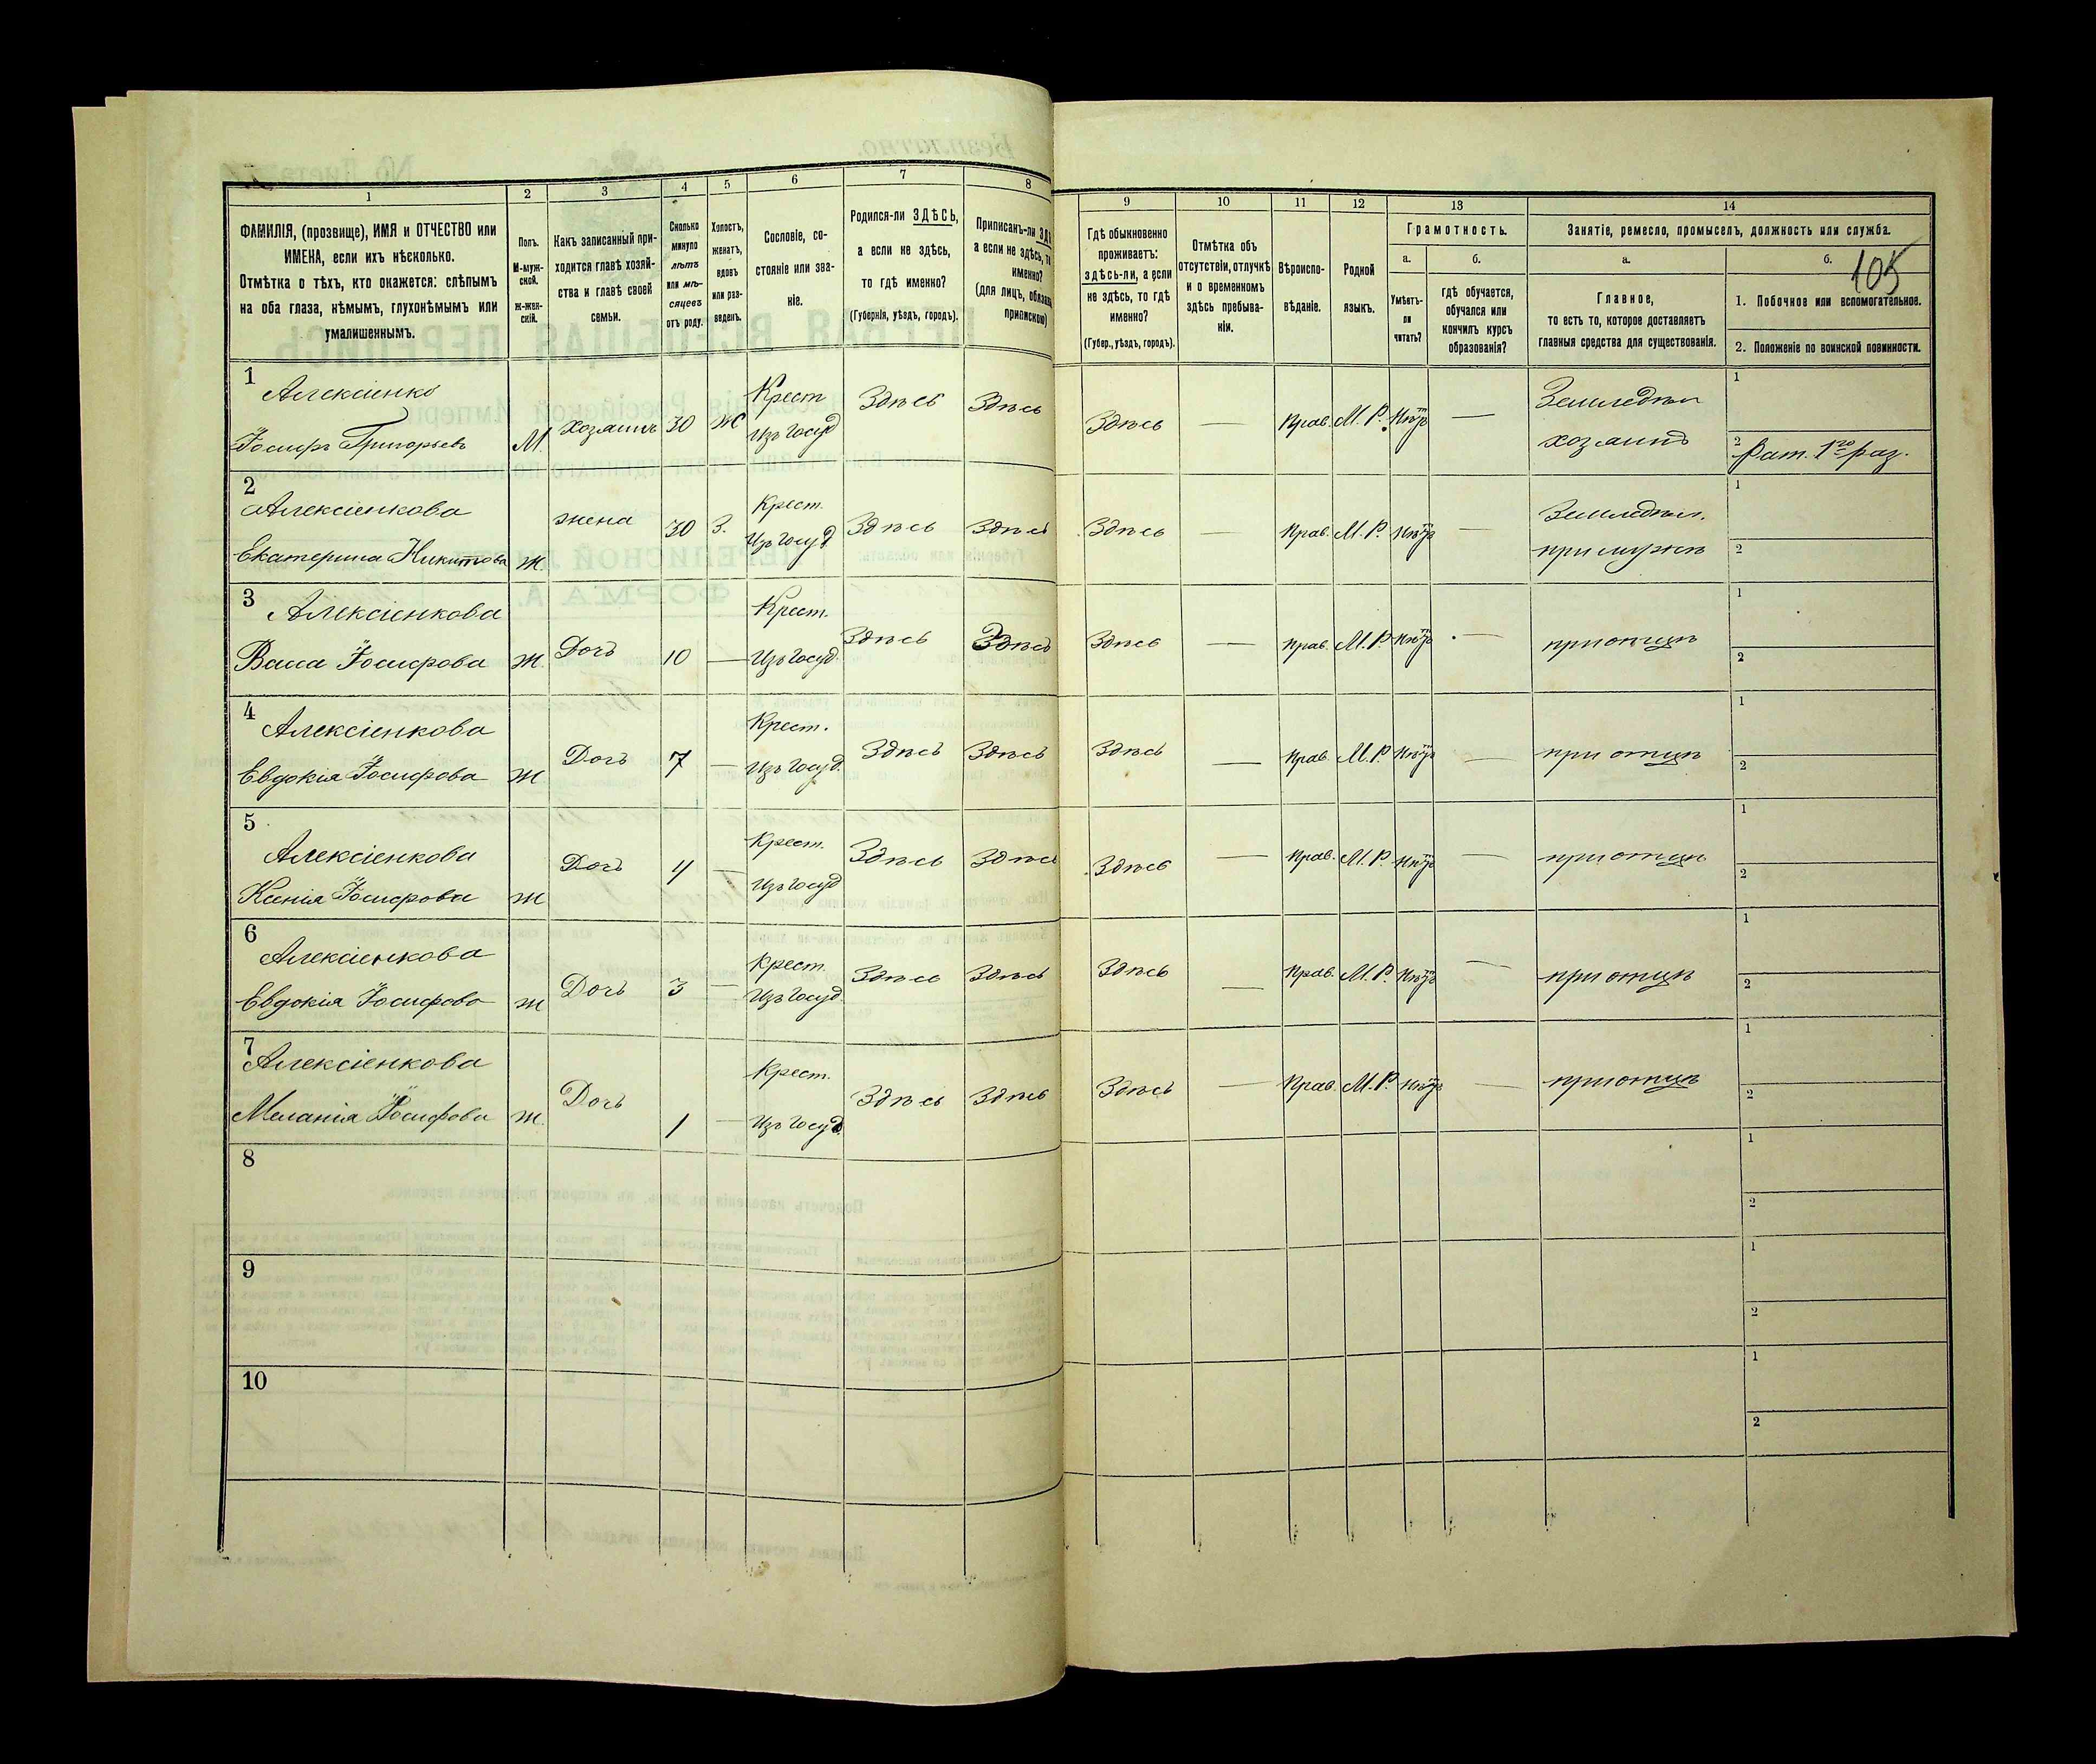 1
2
3
4
5
6
7
8
ФАМИЛІЯ, (прозвище), ИМЯ и ОТЧЕСТВО или
ИМЕНА, если ихъ нѣсколько.
Отмѣтка о тѣхъ, кто окажется: слѣпымъ
на оба глаза, нѣмымъ, глухонѣмымъ или
умалишеннымъ.
Полъ.
М-муж-
ской.
Ж-жен-
скій.
Какъ записанный при-
ходится главѣ хозяй-
ства и главѣ своей
семьи.
Сколько
минуло
лѣтъ
или мѣ-
сяцевъ
отъ роду.
Холостъ,
женатъ,
вдовъ
или раз-
веденъ.
Сословіе, со-
стояніе или зва-
ніе.
Родился-ли ЗДѢСЬ,
а если не здѣсь,
то гдѣ именно?
(Губернія, уѣздъ, городъ).
Приписанъ-ли
а если не здѣсь,
именно?
(для лицъ,
припискою)
9
10
11
12
13
14
Гдѣ обыкновенно
проживаетъ:
здѣсь-ли, а если
не здѣсь, то гдѣ
именно?
(Губер., уѣздъ, городъ).
Отмѣтка объ
отсутствіи, отлучкѣ
и о временномъ
здѣсь пребыва-
ніи.
Вѣроиспо-
вѣданіе.
Родной
языкъ.
Грамотность.
а.
Умѣетъ-
ли
читать?
б.
гдѣ обучается,
обучался или
кончилъ курсъ
образованія?
Занятіе, ремесло, промыселъ, должность или служба.
а.
Главное,
то есть то, которое доставляетъ
главныя средства для существованія.
б.
105
1. Побочное или вспомогательное.
2. Положеніе по воинской повинности.
1
Алексіенко
Іосифъ Григорьевъ
М.
хозяинъ
30
Ж
Крест
Изъ Госуд
Здѣсь
Здѣсь
Здѣсь
—
Прав.
М. Р.
—
Земледѣл
хозяинъ
1
2
Рат. 1го раз.
2
Алексіенкова
Екатерина Никитова
Ж.
жена
30
З.
Крест.
Изъ Госуд
Здѣсь
Здѣсь
Здѣсь
—
Прав.
М. Р.
—
Земледѣл.
при мужѣ
1
2
3
Алексіенкова
Васса Іосифова
Ж.
Дочь
10
—
Крест.
Изъ Госуд.
Здѣсь
Здѣсь
Здѣсь
—
Прав.
М. Р.
—
при отцѣ
1
2
4
Алексіенкова
Евдокія Іосифова
Ж
Дочь
7
—
Крест.
Изъ Госуд.
Здѣсь
Здѣсь
Здѣсь
—
Прав.
М. Р.
—
при отцѣ
1
2
5
Алексіенкова
Ксенія Іосифова
Ж
Дочь
4
—
Крест.
Изъ Госуд
Здѣсь
Здѣсь
Здѣсь
—
Прав.
М. Р.
—
при отцѣ
1
2
6
Алексіенкова
Евдокія Іосифова
Ж
Дочь
3
—
Крест.
Изъ Госуд.
Здѣсь
Здѣсь
Здѣсь
—
Прав.
М. Р.
—
при отцѣ
1
2
7
Алексіенкова
Меланія Іосифова
Ж.
Дочь
1
—
Крест.
Изъ Госуд.
Здѣсь
Здѣсь
Здѣсь
—
Прав.
М. Р.
—
при отцѣ
1
2
8
1
2
9
1
2
10
1
2